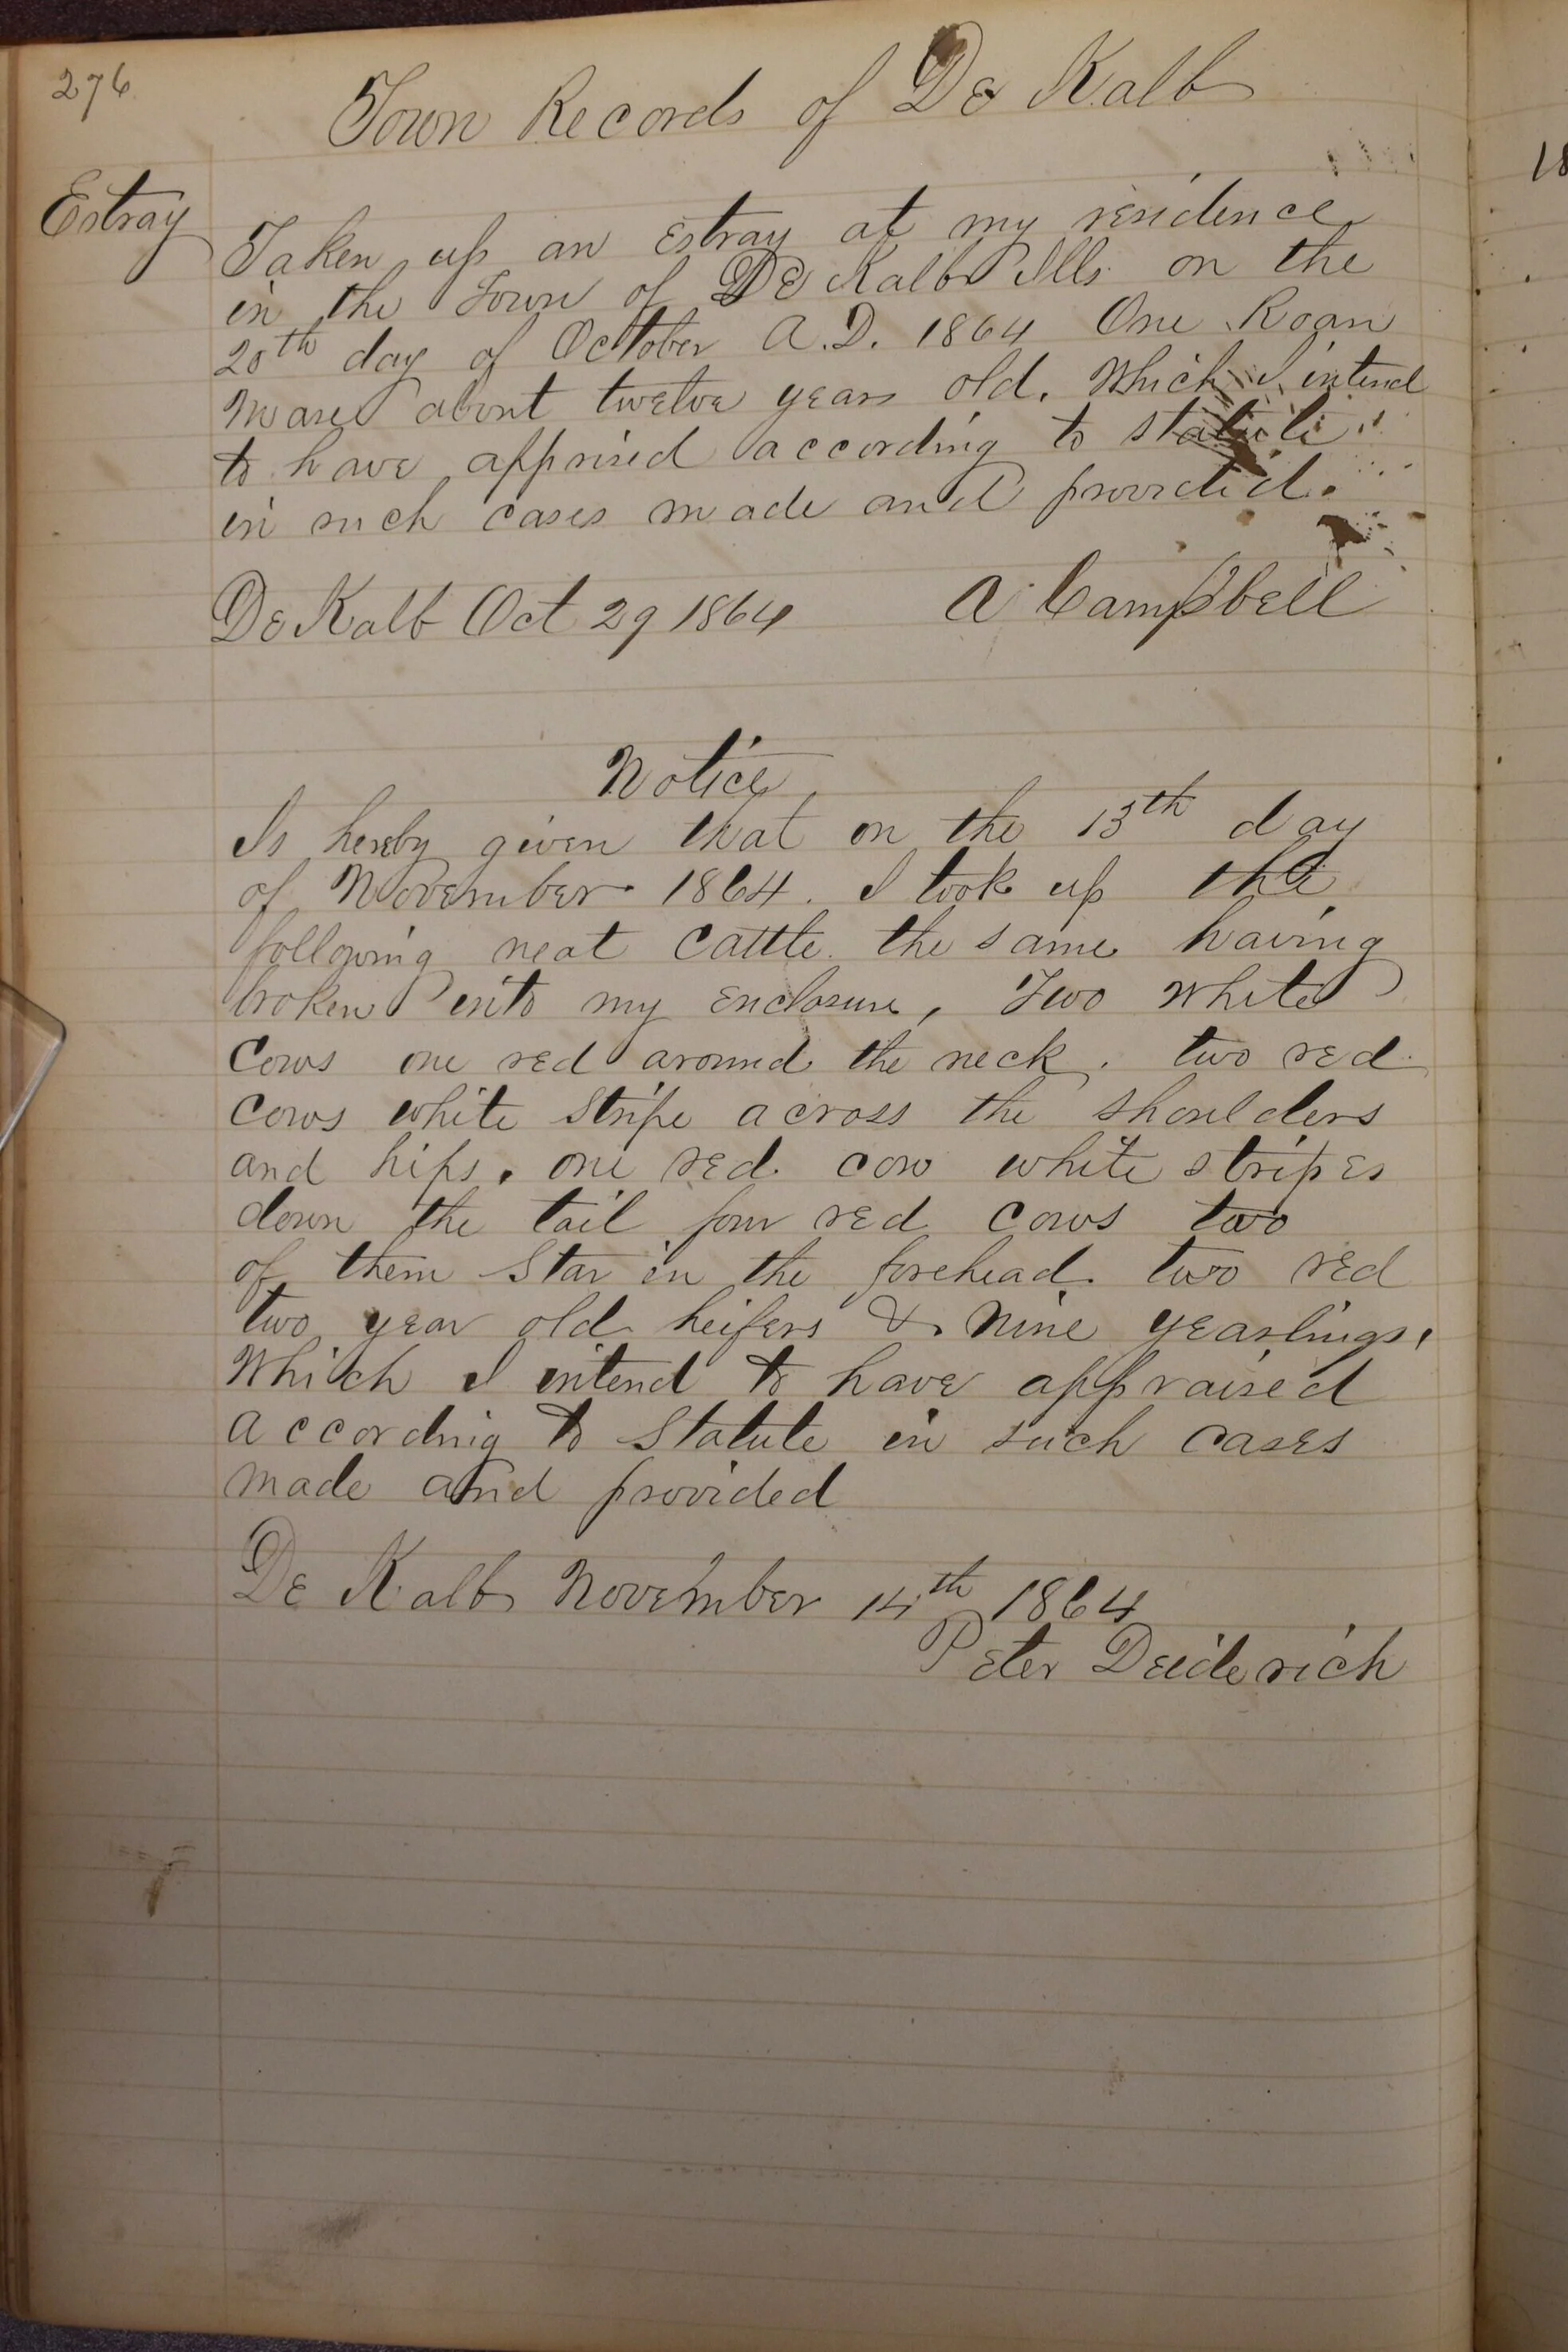 276
Town Records of De Kalb
Estray
Taken up an Estray at my residence
in the Town of De Kalb Ills on the
20th day of October A.D. 1864 One Roan
Mare about twelve years old. Which I intend
to have apprised according to statute
in such cases made and provided.
De Kalb Oct 29 1864 A Campbell
Notice
Is hereby given that on the 13th day
of November 1864. I took up the
following neat Cattle. the same having
broken into my Enclosure, Two White
Cows one red around the neck. two red
Cows white Stripe across the shoulders
and hips. one red cow white stripes
down the tail four red Cows two
of them Star in the forehead. two red
two year old heifers & Nine yearlings.
Which I intend to have appraised
according to Statute in such cases
made and provided
De Kalb November 14th 1864
Peter Deiderich
18